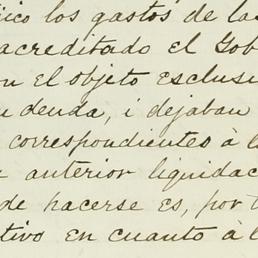 ico los gastos de las
acreditado el Gob
n el objeto exclusi
u deuda, i dejaban
correspondientes à l
anterior liquidac
de hacerse es, por t
tivo en cuanto à l